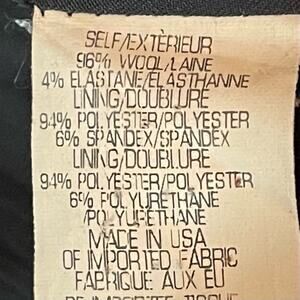 SELF/EXTÈRIEUR
96% WOOL/LAINE
4% ELASTANE/ELASTHANNE
LINING/DOUBLURE
94% POLYESTER/POLYESTER
6% SPANDEX/SPANDEX
LINING/DOUBLURE
94% POLYESTER/POLYESTER
6% POLYURETHANE
/POLYURÉTHANE
MADE IN USA
OF IMPORTED FABRIC
FABRIQUE AUX EU